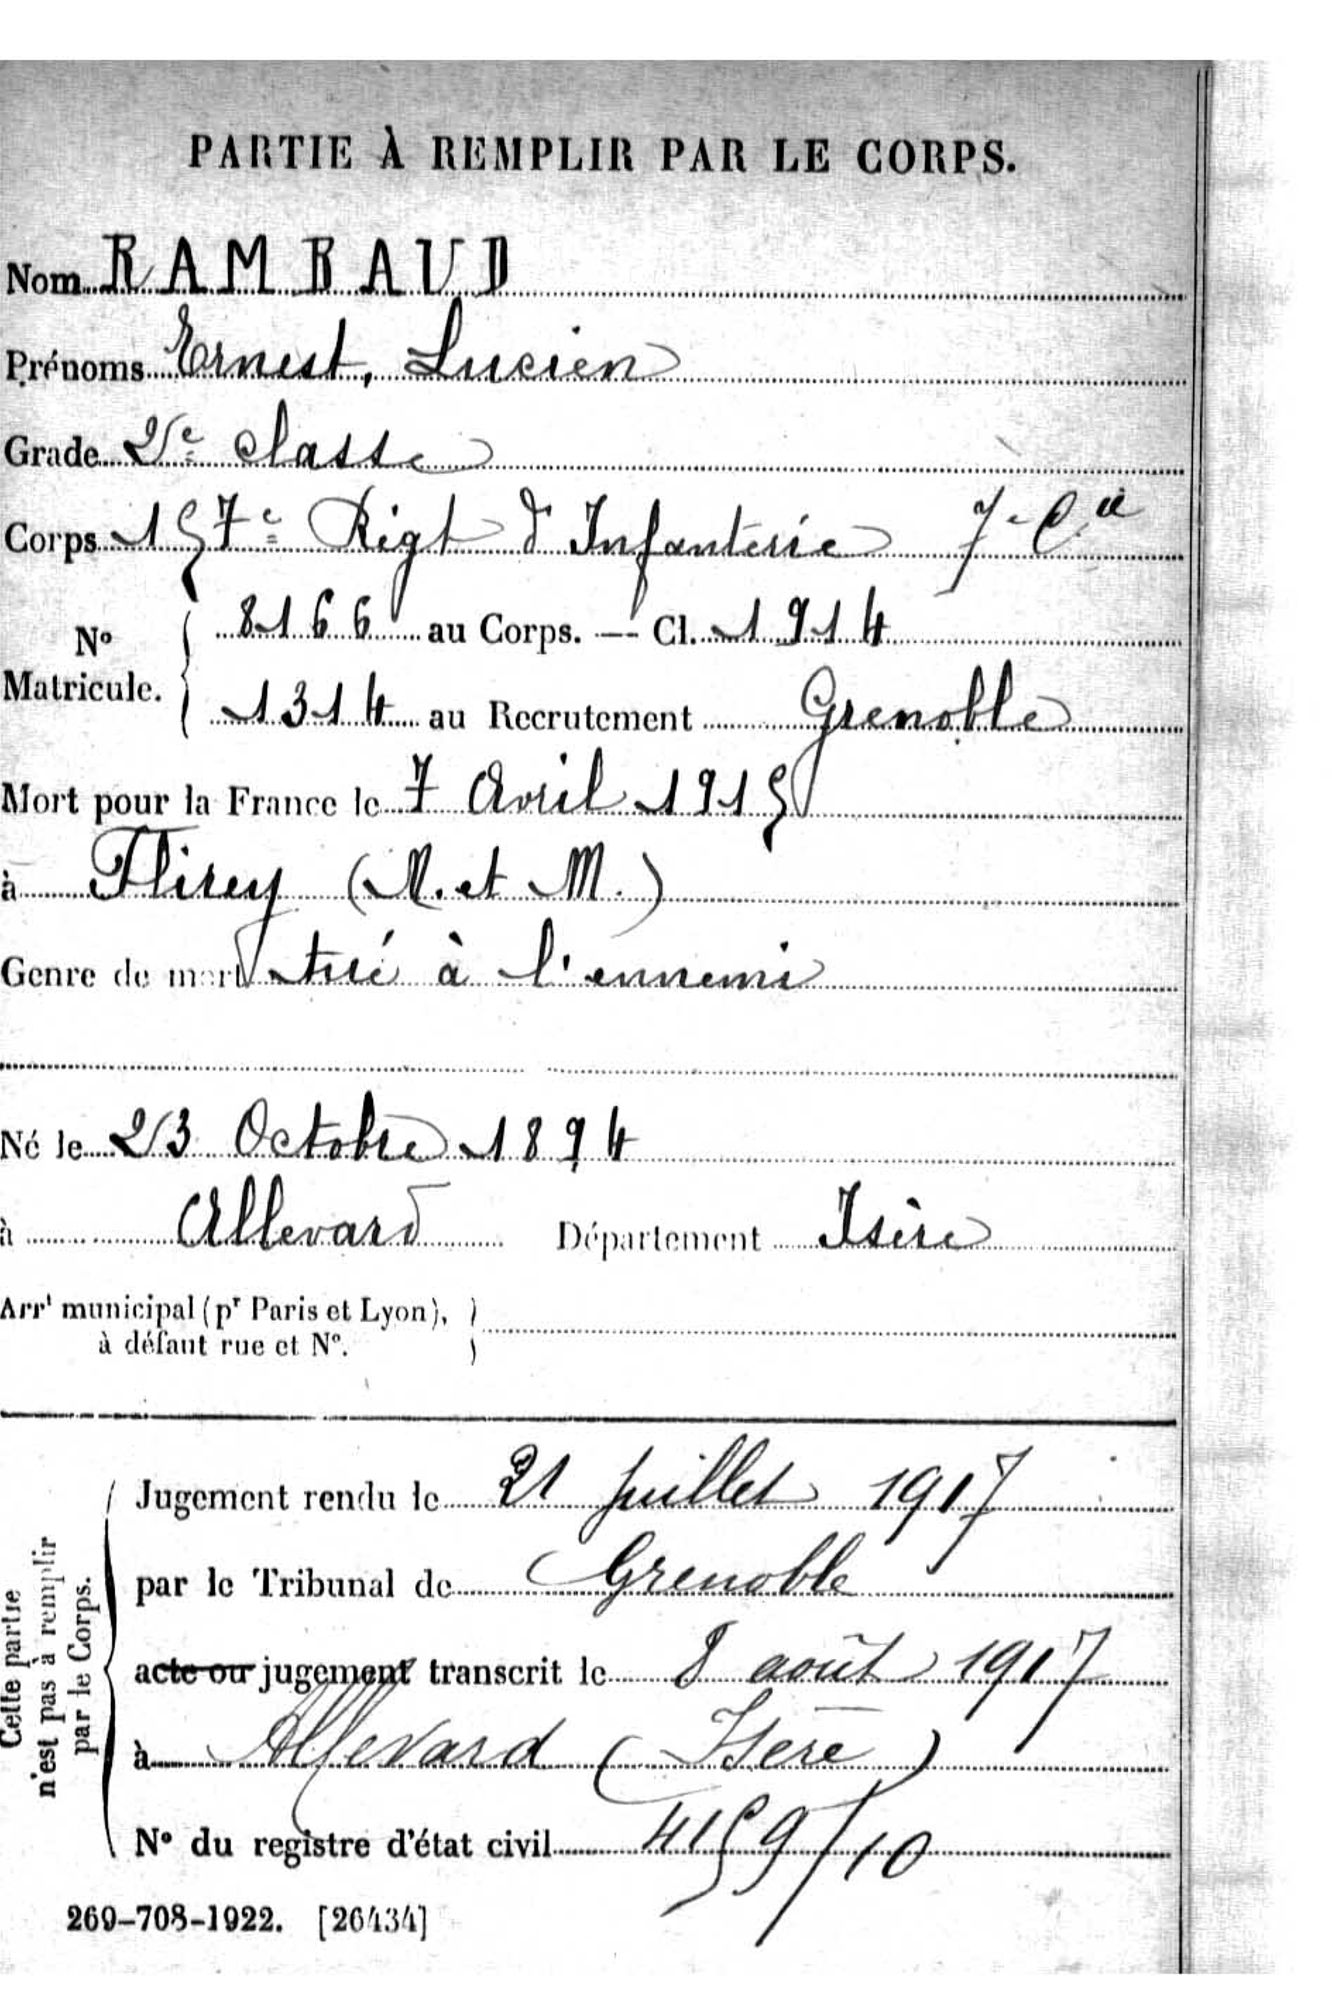 PARTIE À REMPLIR PAR LE CORPS.
Nom RAMBAUD
Prénoms Ernest, Lucien
Grade 2e classe
Corps 157e Régt d'Infanterie 7e Cie
No Matricule. 8166 au Corps. — Cl. 1914
1314 au Recrutement Grenoble
Mort pour la France le 7 Avril 1915
à Flirey (M. et M.)
Genre de mort tué à l'ennemi
Né le 23 Octobre 1894
à Allevard Département Isère
Arrt municipal (pr Paris et Lyon),
à défaut rue et No.
Cette partie
n'est pas à remplir
par le Corps.
Jugement rendu le 21 juillet 1917
par le Tribunal de Grenoble
acte ou jugement transcrit le 8 août 1917
à Allevard (Isère)
No du registre d'état civil 4159/10
269-708-1922. [26434]